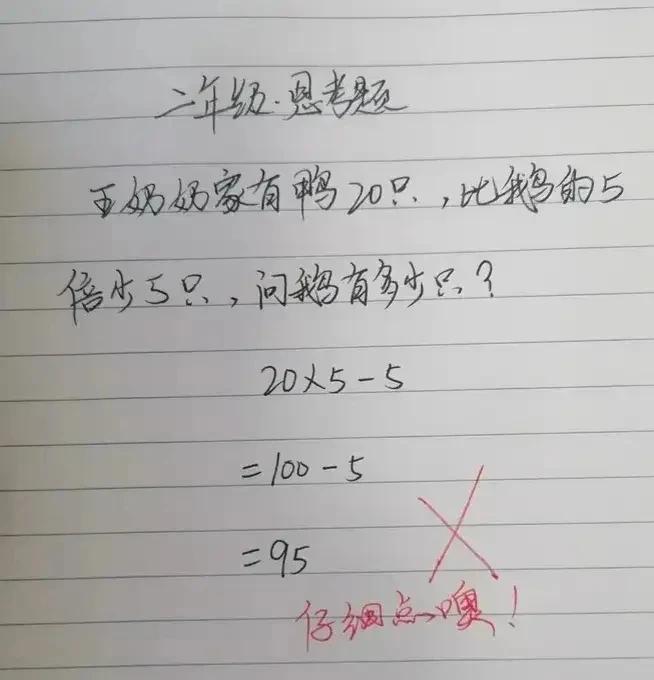 二年级.思考题
王奶奶家有鸭20只,比鹅的5
倍少5只,问鹅有多少只?
20×5-5
=100-5
=95
仔细点噢!